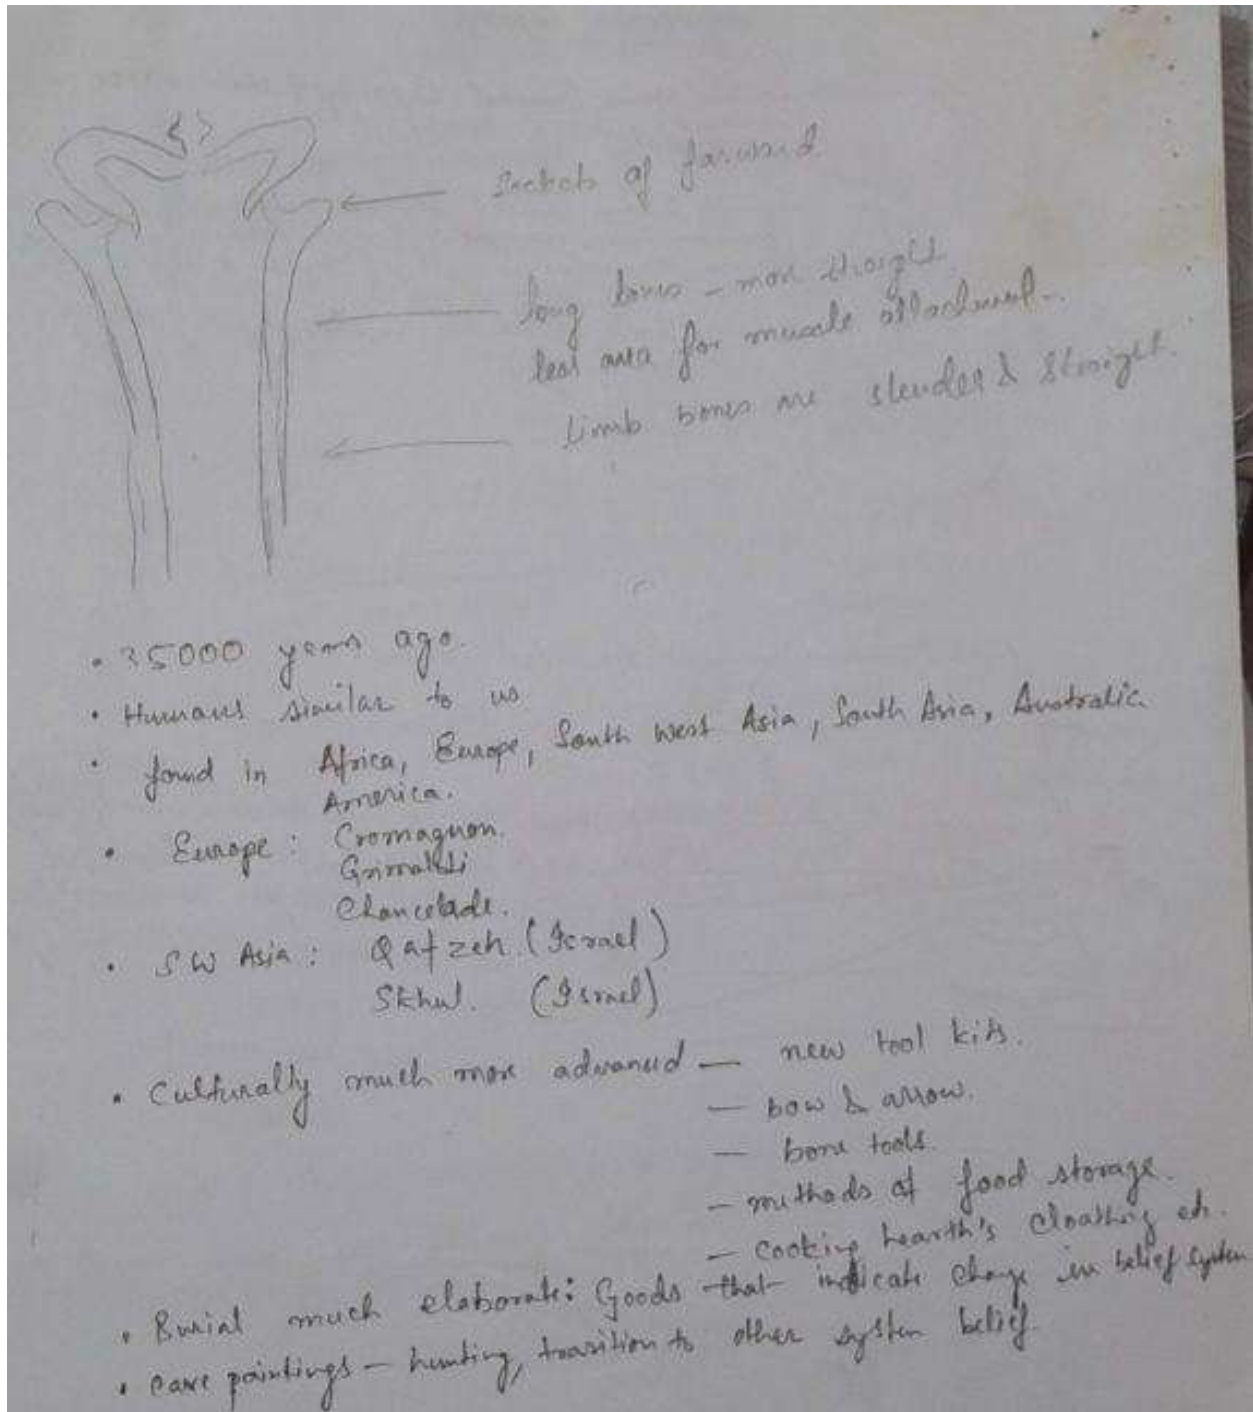 sockets of forward
long bones - more straight
less area for muscle attachment.
Limb bones are slender & straight.
• 35000 years ago.
• Humans similar to us
• found in Africa, Europe, South West Asia, South Asia, Australia
America.
• Europe : Cromagnon.
Grimaldi
Chancelade.
• SW Asia : Qafzeh. (Israel)
Skhul. (Israel)
• Culturally much more advanced — new tool kits.
— bow & arrow.
— bone tools.
— methods of food storage.
— cooking hearth's cloathing etc.
• Burial much elaborate: Goods that indicate change in belief system
• cave paintings — hunting, transition to other system belief.